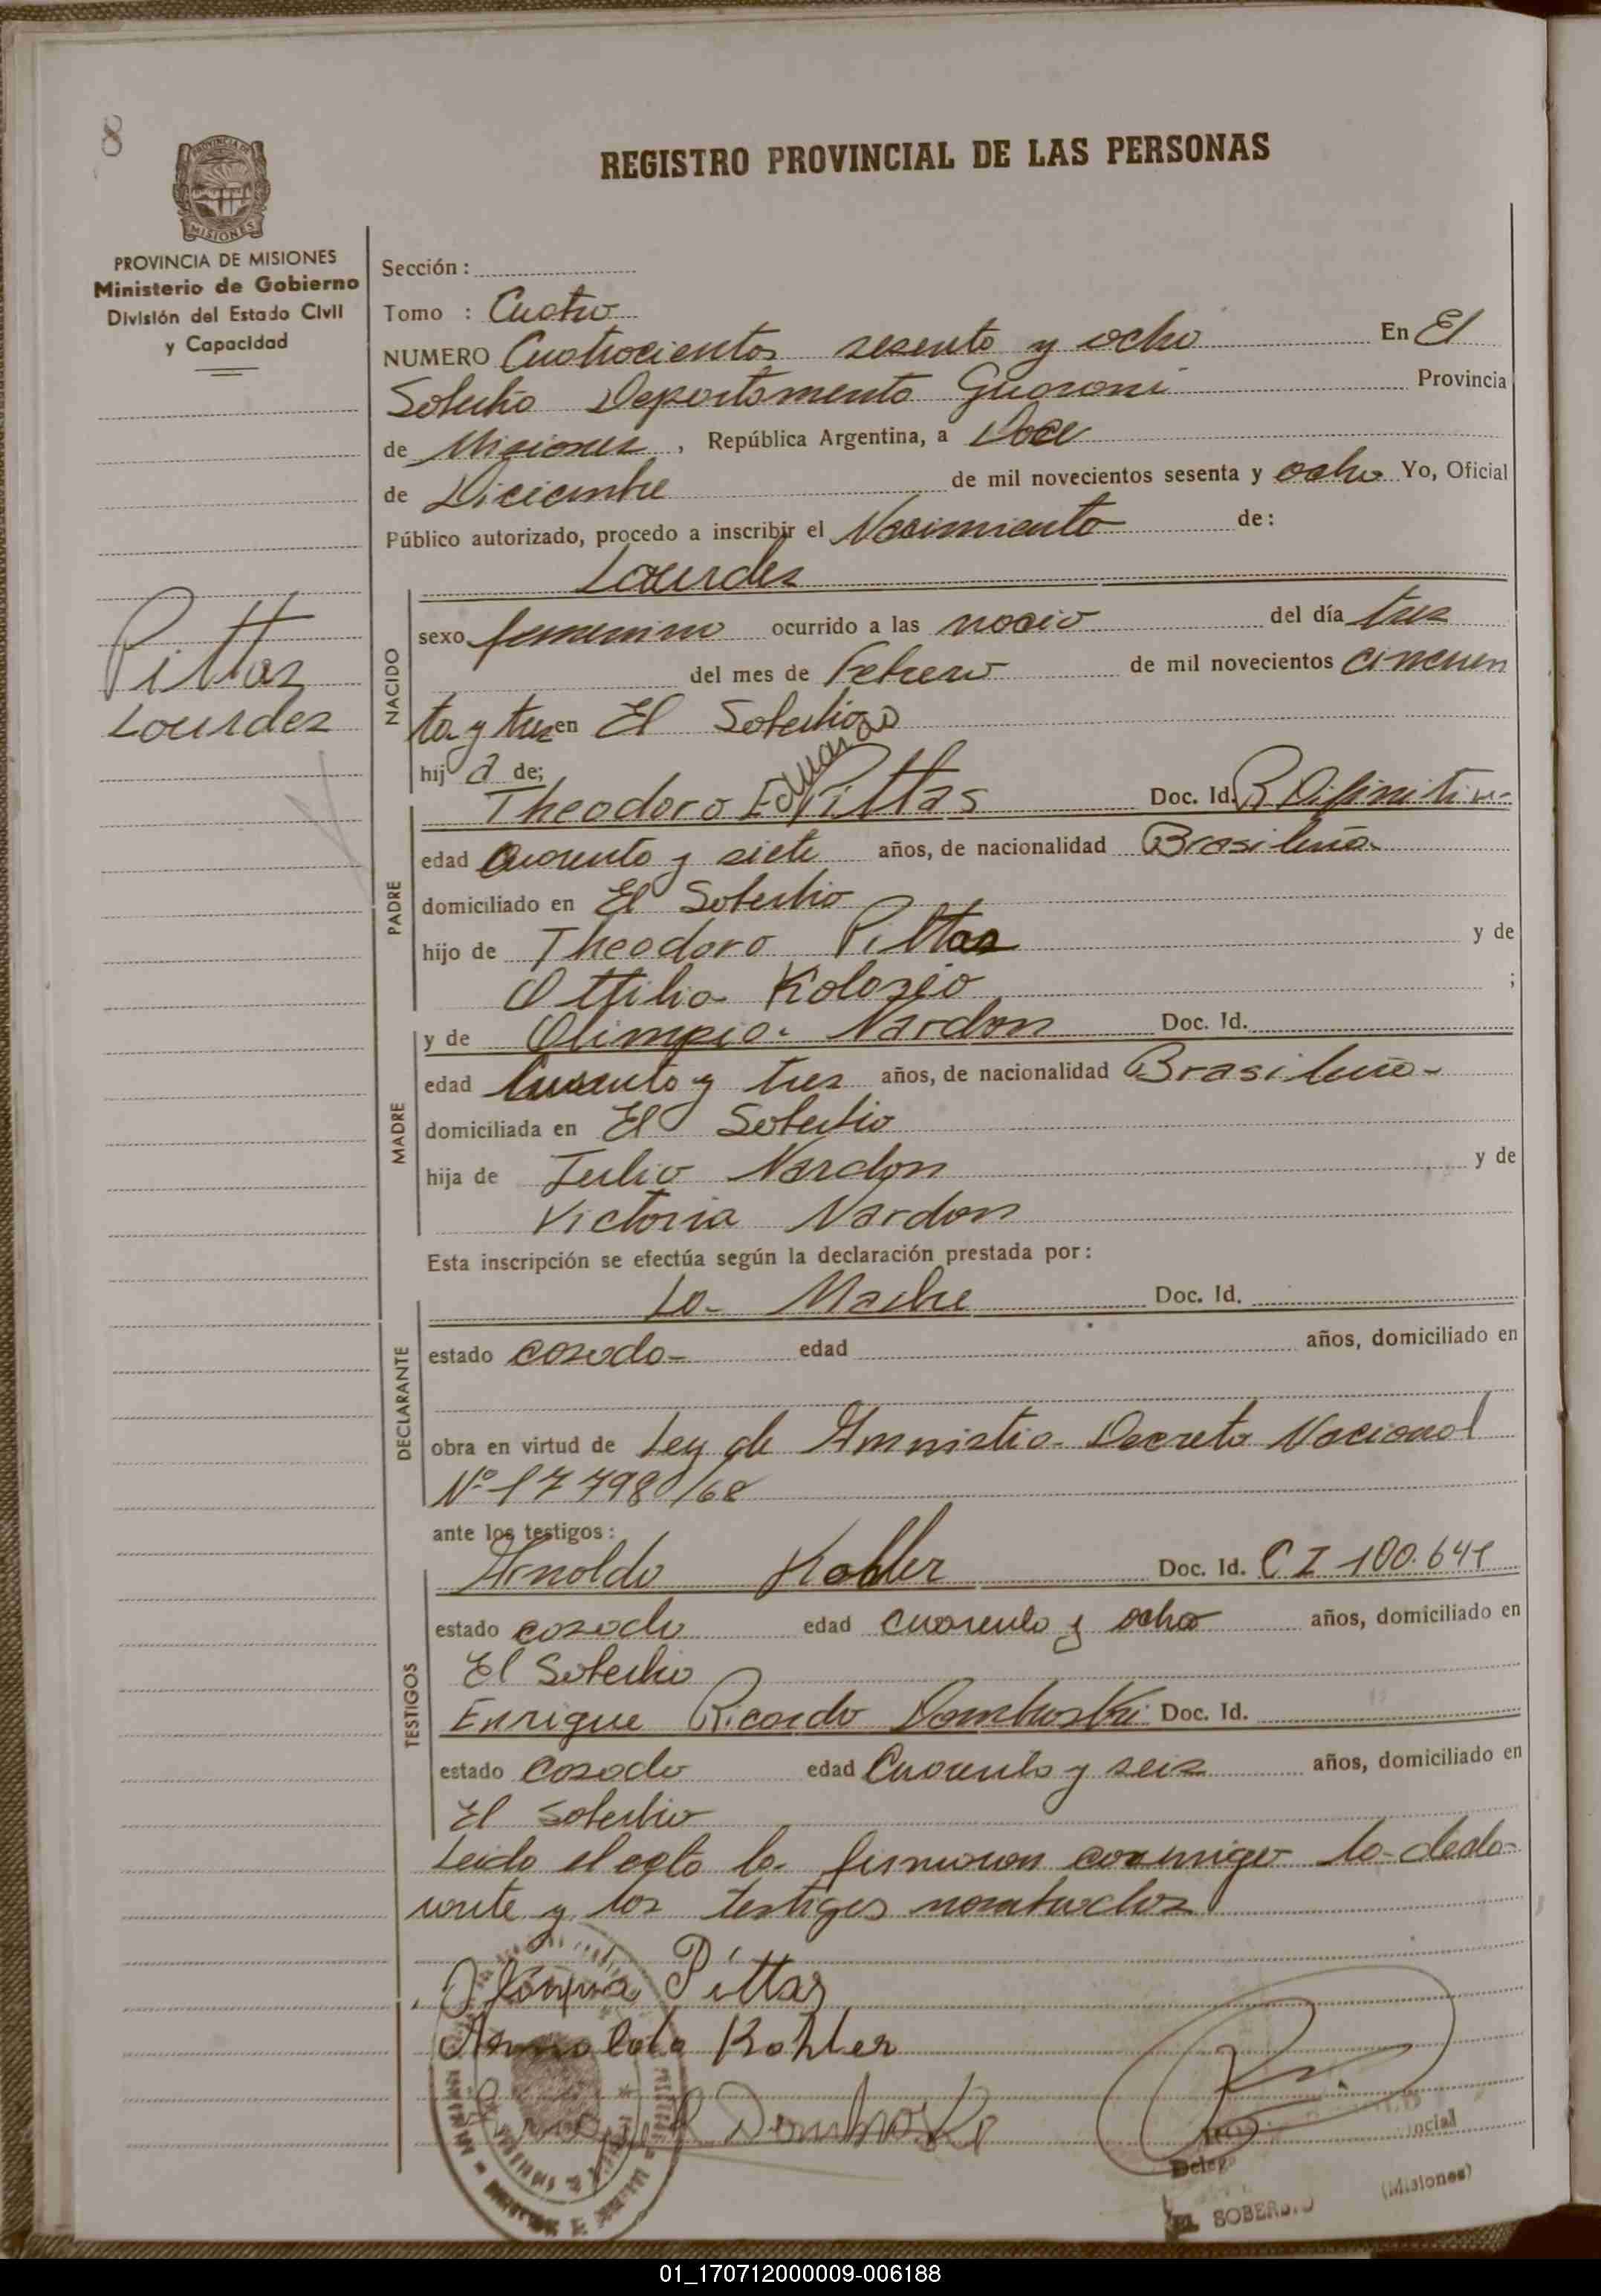 8
REGISTRO PROVINCIAL DE LAS PERSONAS
PROVINCIA DE
MISIONES
PROVINCIA DE MISIONES
Ministerio de Gobierno
División del Estado Civil
y Capacidad
Pittas
Lourdes
Sección :
Tomo : Cuatro
NUMERO Cuatrocientos sesenta y ocho En El
Soberbio Departamento Guarani Provincia
de Misiones , República Argentina, a Doce
de Diciembre de mil novecientos sesenta y ocho Yo, Oficial
Público autorizado, procedo a inscribir el Nacimiento de :
Lourdes
NACIDO
sexo femenino ocurrido a las nacio del día tres
del mes de Febrero de mil novecientos cincuen
ta y tres en El Soberbio
hij a de;
Theodoro Eduardo Pittas Doc. Id. R Difinitiva
PADRE
edad Cuarenta y siete años, de nacionalidad Brasileña
domiciliado en El Soberbio
hijo de Theodoro Pittas y de
Ottilia Kolozio ;
MADRE
y de Olimpia Nardon Doc. Id.
edad Cuarenta y tres años, de nacionalidad Brasileña
domiciliada en El Soberbio
hija de Julio Nardon y de
Victoria Nardon
Esta inscripción se efectúa según la declaración prestada por :
DECLARANTE
La Madre Doc. Id.
estado casada edad años, domiciliado en
obra en virtud de Ley de Amnistia Decreto Nacional
Nº 17798/68
ante los testigos :
TESTIGOS
Arnoldo Kohler Doc. Id. C I 100.641
estado casado edad cuarenta y ocho años, domiciliado en
El Soberbio
Enrique Ricardo Dombroski Doc. Id.
estado Casado edad Cuarenta y seis años, domiciliado en
El Soberbio
Leido el acta la firmaron conmigo la decla-
rante y los testigos nombrados
Olimpia Pittas
Arnoldo Kohler
Dombroski
Deleg
EL SOBERBIO (Misiones)
01_170712000009-006188